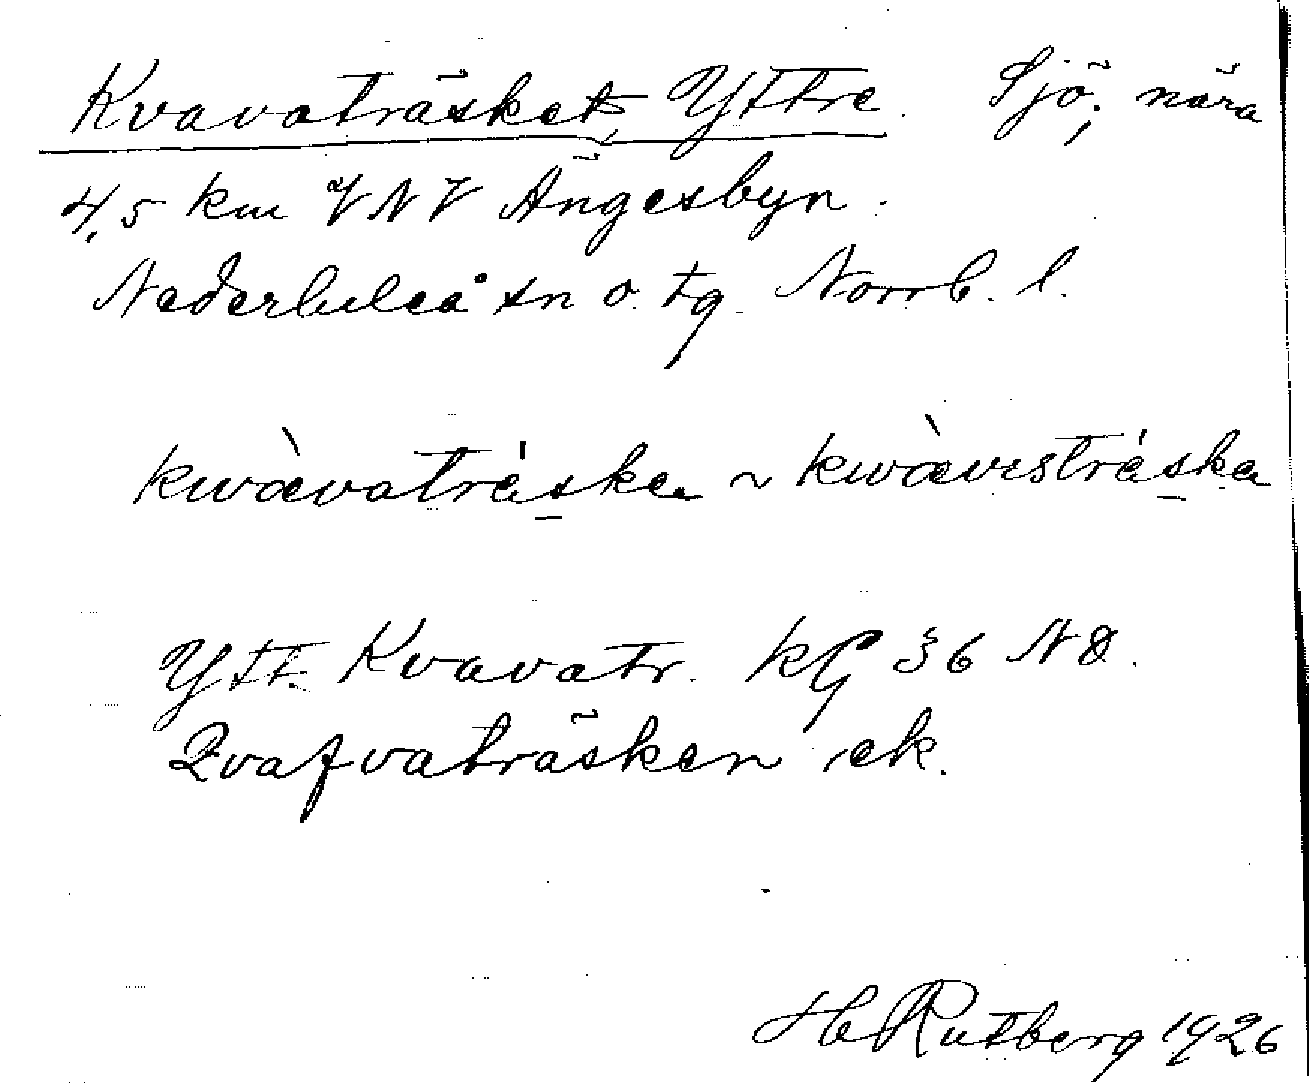 Kvavaträsket, Yttre. Sjö; nära
4,5 km VNV Ängesbyn.
Nederluleå sn o. tg. Norrb. l.
kwàvatrǻska ~ kwàvıstrǻska
Ytt. Kvavatr. kG 36 NO.
Qvafvaträsken ek.
H Rutberg 1926